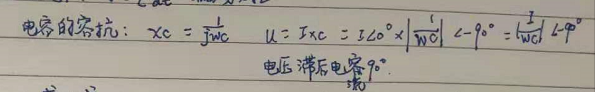 电容的容抗: xc = 1/jwc U = Ixc = I∠0° × |1/wc| ∠-90° = |I/wc| ∠-90°
电压滞后电容90°.
流